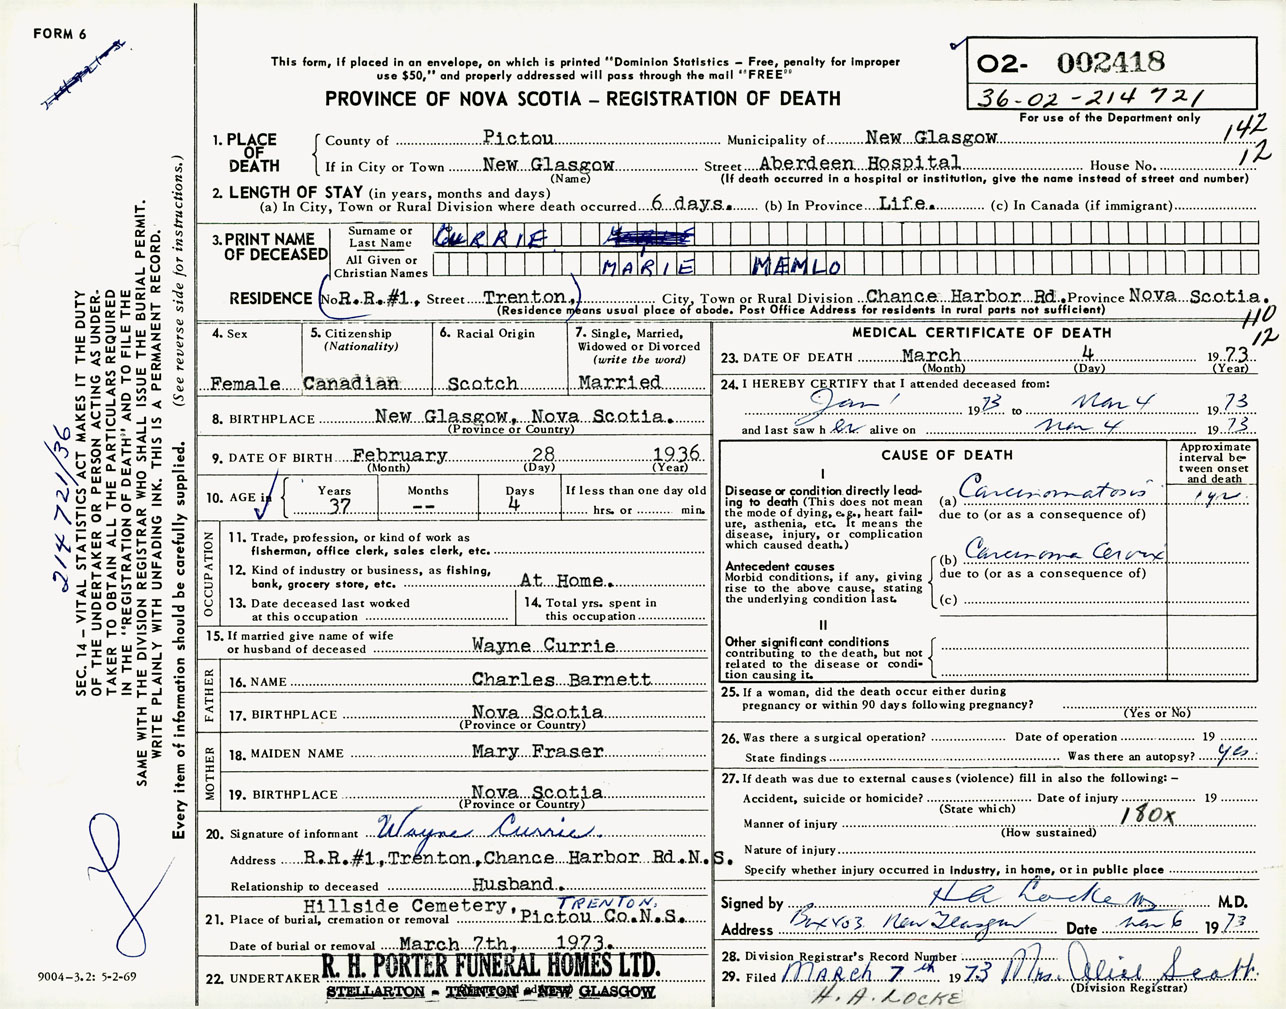 FORM 6
This form, if placed in an envelope, on which is printed "Dominion Statistics – Free, penalty for improper
use $50," and properly addressed will pass through the mail "FREE"
PROVINCE OF NOVA SCOTIA – REGISTRATION OF DEATH
O2- 002418
36-02-214721
For use of the Department only
142
12
1. PLACE OF DEATH
County of Pictou Municipality of New Glasgow
If in City or Town New Glasgow Street Aberdeen Hospital House No.
(Name) (If death occurred in a hospital or institution, give the name instead of street and number)
2. LENGTH OF STAY (in years, months and days)
(a) In City, Town or Rural Division where death occurred 6 days. (b) In Province Life. (c) In Canada (if immigrant)
3. PRINT NAME OF DECEASED
Surname or Last Name CURRIE
All Given or Christian Names MARIE MEMLO
RESIDENCE (No. R.R.#1, Street Trenton,) City, Town or Rural Division Chance Harbor Rd. Province Nova Scotia.
(Residence means usual place of abode. Post Office Address for residents in rural parts not sufficient)
110
12
4. Sex
Female
5. Citizenship
(Nationality)
Canadian
6. Racial Origin
Scotch
7. Single, Married,
Widowed or Divorced
(write the word)
Married
8. BIRTHPLACE New Glasgow, Nova Scotia.
(Province or Country)
9. DATE OF BIRTH February 28 1936
(Month) (Day) (Year)
10. AGE in
Years Months Days If less than one day old
37 -- 4 hrs. or min.
OCCUPATION
11. Trade, profession, or kind of work as
fisherman, office clerk, sales clerk, etc.
12. Kind of industry or business, as fishing,
bank, grocery store, etc. At Home.
13. Date deceased last worked
at this occupation
14. Total yrs. spent in
this occupation
15. If married give name of wife
or husband of deceased Wayne Currie
FATHER
16. NAME Charles Barnett
17. BIRTHPLACE Nova Scotia
(Province or Country)
MOTHER
18. MAIDEN NAME Mary Fraser
19. BIRTHPLACE Nova Scotia
(Province or Country)
20. Signature of informant Wayne Currie.
Address R.R.#1,Trenton,Chance Harbor Rd.N.S.
Relationship to deceased Husband.
Hillside Cemetery, TRENTON,
21. Place of burial, cremation or removal Pictou Co.N.S.
Date of burial or removal March 7th, 1973.
22. UNDERTAKER R. H. PORTER FUNERAL HOMES LTD.
STELLARTON - TRENTON - NEW GLASGOW
MEDICAL CERTIFICATE OF DEATH
23. DATE OF DEATH March 4 1973
(Month) (Day) (Year)
24. I HEREBY CERTIFY that I attended deceased from:
Jan 1 1973 to Mar 4 1973
and last saw her alive on Mar 4 1973
CAUSE OF DEATH
Approximate
interval be-
tween onset
and death
I
Disease or condition directly lead-
ing to death (This does not mean
the mode of dying, e.g., heart fail-
ure, asthenia, etc. It means the
disease, injury, or complication
which caused death.)
(a) Carcinomatosis 1 yr.
due to (or as a consequence of)
Antecedent causes
Morbid conditions, if any, giving
rise to the above cause, stating
the underlying condition last.
(b) Carcinoma Cervix
due to (or as a consequence of)
(c)
II
Other significant conditions
contributing to the death, but not
related to the disease or condi-
tion causing it.
25. If a woman, did the death occur either during
pregnancy or within 90 days following pregnancy?
(Yes or No)
26. Was there a surgical operation? Date of operation 19
State findings Was there an autopsy? yes
27. If death was due to external causes (violence) fill in also the following: –
Accident, suicide or homicide? Date of injury 19
(State which)
180x
Manner of injury
(How sustained)
Nature of injury
Specify whether injury occurred in Industry, in home, or in public place
Signed by H A Locke M.D.
Address Box 703 New Glasgow Date Mar 6 1973
28. Division Registrar's Record Number
29. Filed MARCH 7th 1973 Mrs. Alice Scott
(Division Registrar)
H. A. LOCKE
214 721/36
SEC. 14 – VITAL STATISTICS ACT MAKES IT THE DUTY
OF THE UNDERTAKER OR PERSON ACTING AS UNDER-
TAKER TO OBTAIN ALL THE PARTICULARS REQUIRED
IN THE "REGISTRATION OF DEATH" AND TO FILE THE
SAME WITH THE DIVISION REGISTRAR WHO SHALL ISSUE THE BURIAL PERMIT.
WRITE PLAINLY WITH UNFADING INK. THIS IS A PERMANENT RECORD.
Every item of information should be carefully supplied. (See reverse side for instructions.)
9004-3.2: 5-2-69